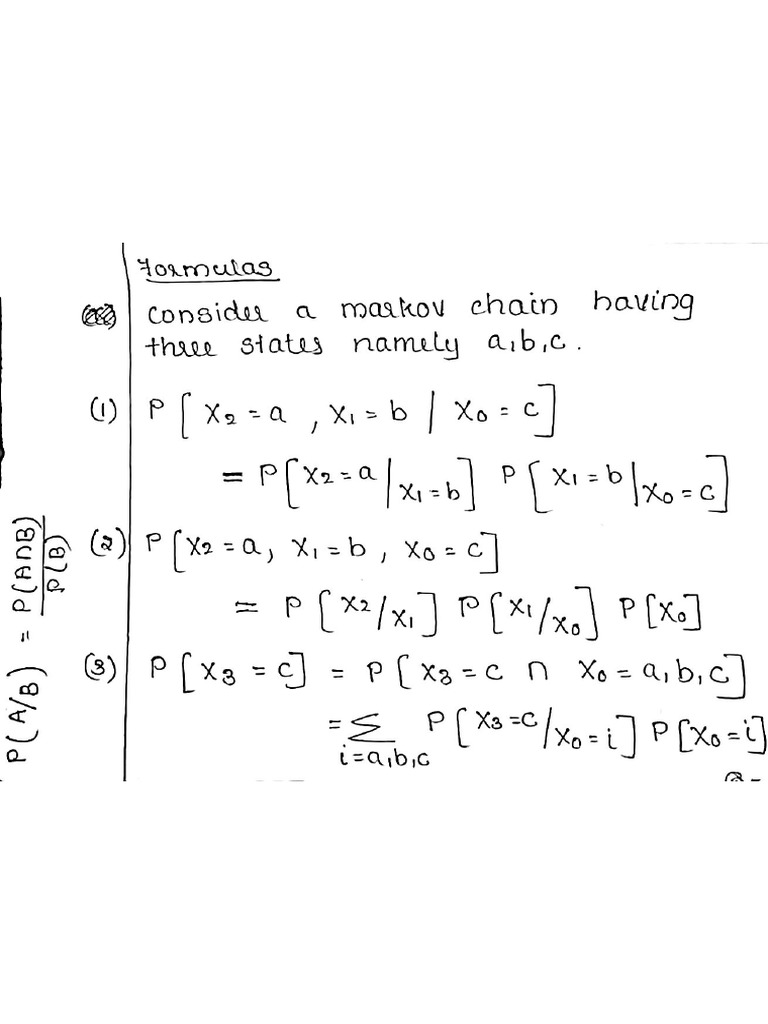 Formulas
consider a markov chain having
three states namely a,b,c.
(1) P[X₂ = a , X₁ = b / X₀ = c]
= P[X₂ = a / X₁ = b] P[X₁ = b / X₀ = c]
(2) P[X₂ = a, X₁ = b, X₀ = c]
= P[X₂/X₁] P[X₁/X₀] P[X₀]
(3) P[X₃ = c] = P[X₃ = c ∩ X₀ = a,b,c]
= Σ P[X₃ = c / X₀ = i] P[X₀ = i]
i=a,b,c
P(A/B) = P(A∩B) / P(B)